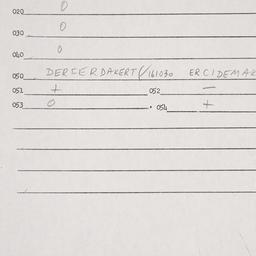 020 0
030 0
040 0
050 DERFERDAKERT (/161030 ERCIDEMAR
051 + 052 —
053 0 • 054 +